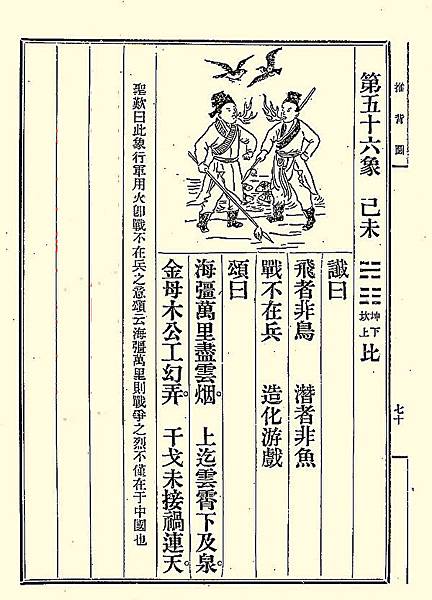 推背圖
七十
第五十六象 己未 ䷇ 坤下坎上 比
讖曰
飛者非鳥 潛者非魚
戰不在兵 造化游戲
頌曰
海疆萬里盡雲烟。上迄雲霄下及泉。
金母木公工幻弄。干戈未接禍連天。
聖歎曰此象行軍用火即戰不在兵之意頌云海疆萬里則戰爭之烈不僅在于中國也